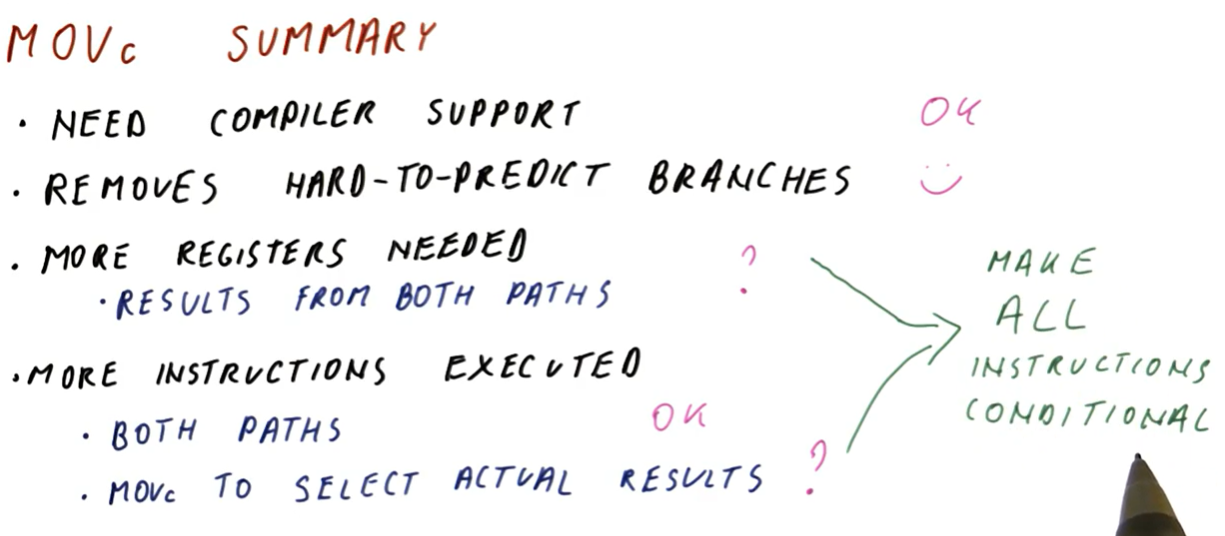 MOVc SUMMARY
· NEED COMPILER SUPPORT OK
· REMOVES HARD-TO-PREDICT BRANCHES
· MORE REGISTERS NEEDED ?
· RESULTS FROM BOTH PATHS
· MORE INSTRUCTIONS EXECUTED
· BOTH PATHS OK
· MOVc TO SELECT ACTUAL RESULTS ?
MAKE
ALL
INSTRUCTIONS
CONDITIONAL